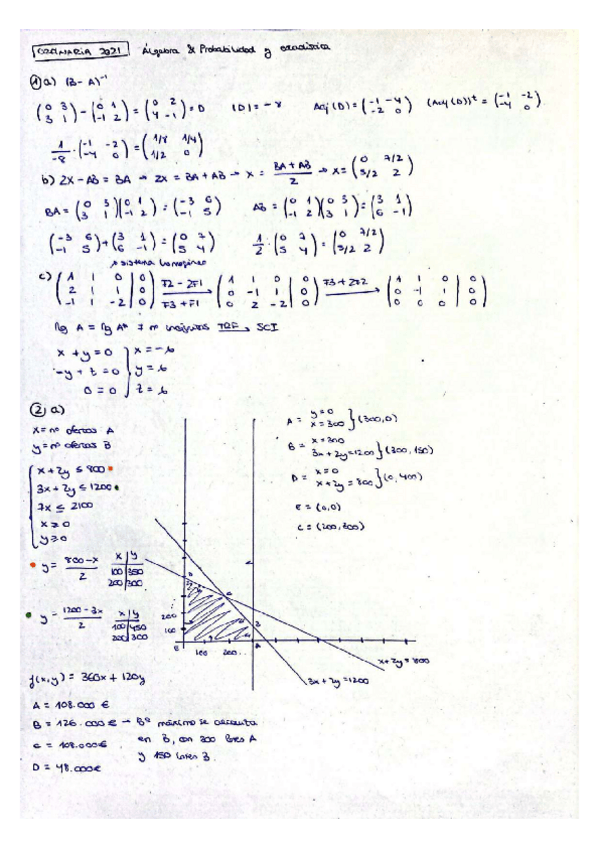 ORDINARIA 2021 Álgebra & Probabilidad y estadística
① a) (B - A)⁻¹
(0 3; 3 1) - (0 1; -1 2) = (0 2; 4 -1) = D |D| = -8 Adj (D) = (-1 -4; -2 0) (Adj (D))ᵗ = (-1 -2; -4 0)
1/-8 · (-1 -2; -4 0) = (1/8 1/4; 1/2 0)
b) 2X - AB = BA → 2X = BA + AB → X = BA + AB / 2 → X = (0 7/2; 5/2 2)
BA = (0 3; 3 1)(0 1; -1 2) = (-3 6; -1 5) AB = (0 1; -1 2)(0 3; 3 1) = (3 1; 6 -1)
(-3 6; -1 5) + (3 1; 6 -1) = (0 7; 5 4) 1/2 · (0 7; 5 4) = (0 7/2; 5/2 2)
sistema homogéneo
c) (1 1 0 | 0; 2 1 1 | 0; -1 1 -2 | 0) F2 - 2F1 F3 + F1 → (1 1 0 | 0; 0 -1 1 | 0; 0 2 -2 | 0) F3 + 2F2 → (1 1 0 | 0; 0 -1 1 | 0; 0 0 0 | 0)
Rg A = Rg A* ≠ nº incógnitas SCI
x + y = 0 } x = -t
-y + z = 0 } y = t
0 = 0 } z = t
② a)
x = nº ofertas A
y = nº ofertas B
x + 2y ≤ 800
3x + 2y ≤ 1200
7x ≤ 2100
x ≥ 0
y ≥ 0
y = 800 - x / 2 x | y 100 | 350 200 | 300
y = 1200 - 3x / 2 x | y 100 | 450 200 | 300
A = y = 0 x = 300 } (300,0)
B = x = 300 3x + 2y = 1200 } (300, 150)
D = x = 0 x + 2y = 800 } (0, 400)
E = (0,0)
C = (200, 300)
D
C
B
A
E
200
100
100 200 ...
x + 2y = 800
3x + 2y = 1200
f(x,y) = 360x + 120y
A = 108.000 €
B = 126.000 € → Bº máximo se
en B, con 300 A
y 150 B.
C = 108.000€
D = 48.000€